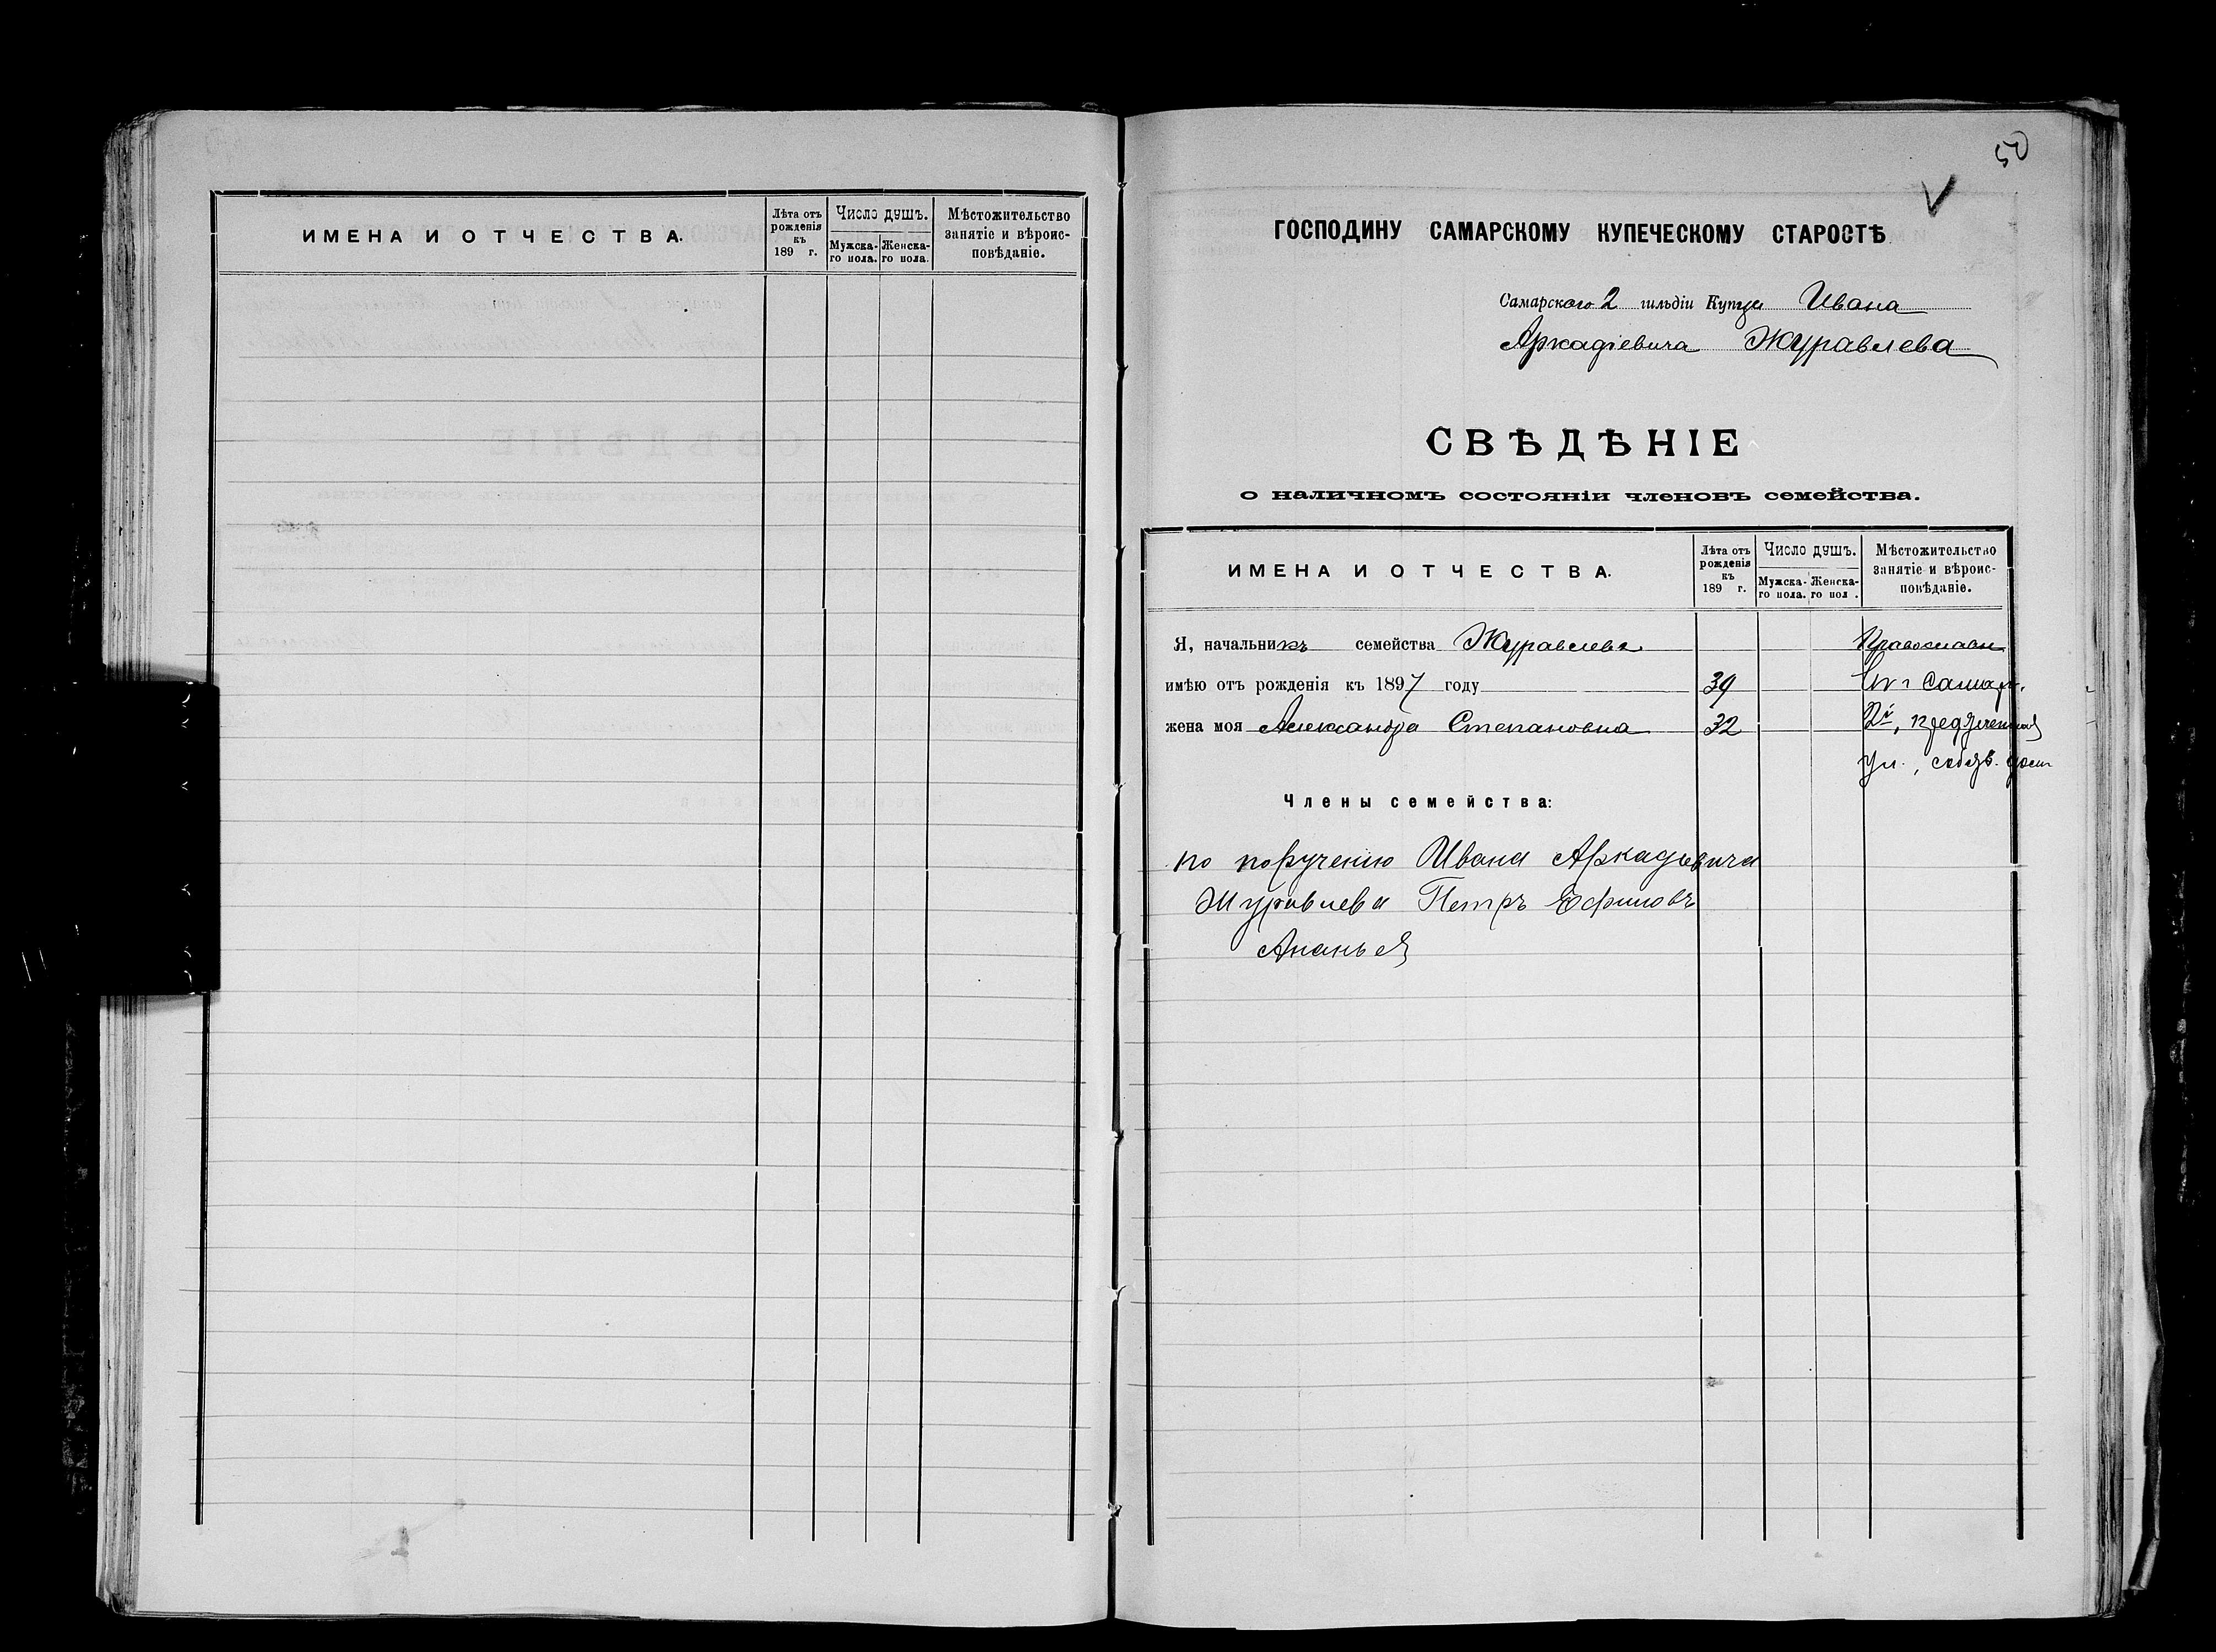 ИМЕНА И ОТЧЕСТВА.
Лѣта отъ рожденія къ 189 г.
Число душъ.
Мужска-го пола.
Женска-го пола.
Мѣстожительство занятіе и вѣроис-повѣданіе.
50
ГОСПОДИНУ САМАРСКОМУ КУПЕЧЕСКОМУ СТАРОСТѢ
Самарского 2 гильдіи Купца Ивана
Аркадіевича Журавлева
СВѢДѢНІЕ
о наличномъ состояніи членовъ семейства.
ИМЕНА И ОТЧЕСТВА.
Лѣта отъ рожденія къ 189 г.
Число душъ.
Мужска-го пола.
Женска-го пол .
Мѣстожительство занятіе и вѣроис-повѣданіе.
Я, начальникъ семейства Журавлевъ Православн
имѣю отъ рожденія къ 1897 году 39 Самар.
жена моя Александра Степановна 32
ул., собств. дом
Члены семейства:
по порученію Ивана Аркадіевича
Журавлева Петръ Ефимовъ
Ананьев